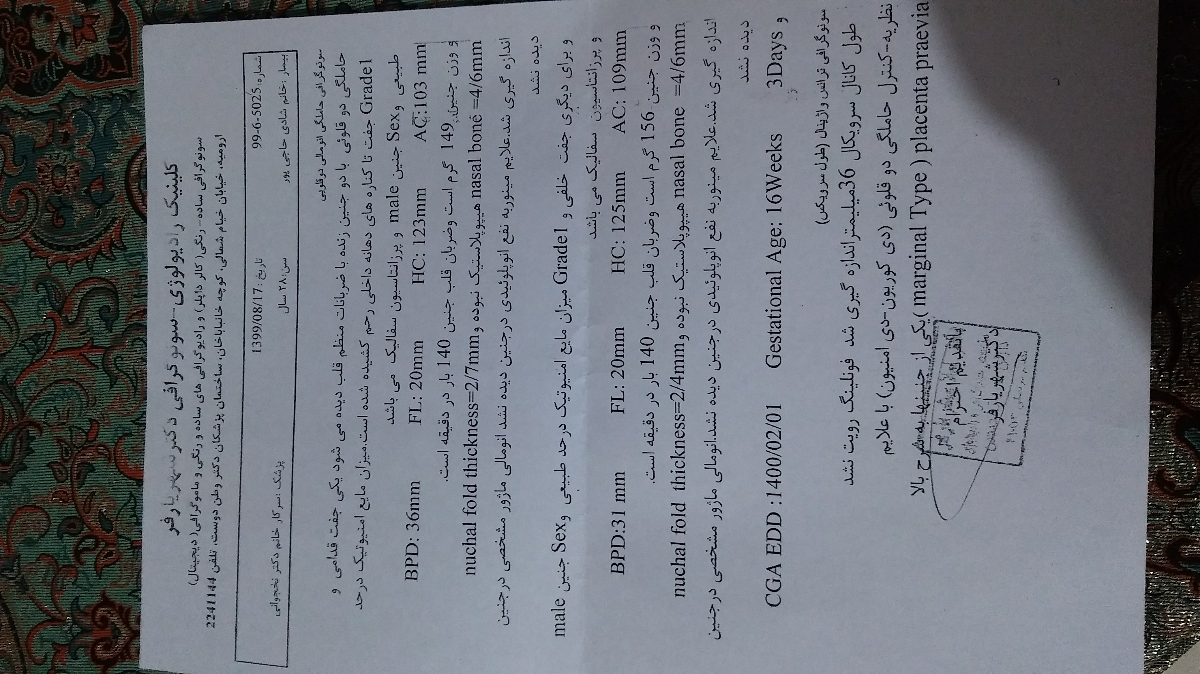 کلینیک رادیولوژی-سونوگرافی دکتر شهریارفر
سونوگرافی ساده-رنگی( کالر داپلر) و رادیوگرافی های ساده و رنگی و ماموگرافی( دیجیتال)
ارومیه، خیابان خیام شمالی، کوچه خانباباخان،ساختمان پزشکان دکتر وطن دوست، تلفن 2241144
شماره:99-6-5025 تاریخ:1399/08/17 پزشک :سرکار خانم دکتر نخجوانی
بیمار :خانم شادی حاجی پور سن:۲۸ سال
سونوگرافی حاملگی آنومالی دوقلویی
حاملگی دو قلوئی با دو جنین زنده با ضربانات منظم قلب دیده می شود یکی جفت قدامی و
Grade1 جفت تا کناره های دهانه داخلی رحم کشیده شده است.میزان مایع امنیوتیک درحد
طبیعی وSex جنین male و پرزانتاسیون سفالیک می باشد
BPD: 36mm FL: 20mm HC: 123mm AC:103 mm
و وزن جنین 149 گرم است وضربان قلب جنین 140 بار در دقیقه است.
nuchal fold thickness=2/7mmهیپوپلاستیک نبوده وnasal bone =4/6mm
اندازه گیری شد.علایم مینوربه نفع انوپلوئیدی درجنین دیده نشد انومالی ماژور مشخصی درجنین
دیده نشد
و برای دیگری جفت خلفی و Grade1 میزان مایع امنیوتیک درحد طبیعی وSex جنین male
و پرزانتاسیون سفالیک می باشد
BPD:31 mm FL: 20mm HC: 125mm AC: 109mm
و وزن جنین 156 گرم است وضربان قلب جنین 140 بار در دقیقه است.
nuchal fold thickness=2/4mmهیپوپلاستیک نبوده وnasal bone =4/6mm
اندازه گیری شد.علایم مینوربه نفع انوپلوئیدی درجنین دیده نشد.انومالی ماژور مشخصی درجنین
دیده نشد
CGA EDD :1400/02/01 Gestational Age: 16Weeks 3Days و
سونوگرافی ترانس واژینال (طول سرویکس)
طول کانال سرویکال 36میلیمتراندازه گیری شد فونلینگ رویت نشد
نظریه-کنترل حاملگی دو قلوئی (دی کوریون-دی امنیون) با علایم
marginal Type ) placenta praevia )یکی از جنینها به شرح بالا
باتقدیم احترام
دکترشهریارفر